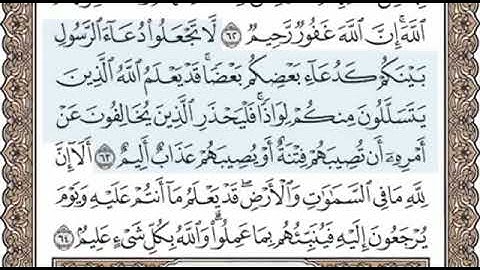 ٱللَّهَۚ إِنَّ ٱللَّهَ غَفُورٞ رَّحِيمٞ ٦٢ لَّا تَجۡعَلُواْ دُعَآءَ ٱلرَّسُولِ
بَيۡنَكُمۡ كَدُعَآءِ بَعۡضِكُم بَعۡضٗاۚ قَدۡ يَعۡلَمُ ٱللَّهُ ٱلَّذِينَ
يَتَسَلَّلُونَ مِنكُمۡ لِوَاذٗاۚ فَلۡيَحۡذَرِ ٱلَّذِينَ يُخَالِفُونَ عَنۡ
أَمۡرِهِۦٓ أَن تُصِيبَهُمۡ فِتۡنَةٌ أَوۡ يُصِيبَهُمۡ عَذَابٌ أَلِيمٌ ٦٣ أَلَآ إِنَّ
لِلَّهِ مَا فِي ٱلسَّمَٰوَٰتِ وَٱلۡأَرۡضِۖ قَدۡ يَعۡلَمُ مَآ أَنتُمۡ عَلَيۡهِ وَيَوۡمَ
يُرۡجَعُونَ إِلَيۡهِ فَيُنَبِّئُهُم بِمَا عَمِلُواْۗ وَٱللَّهُ بِكُلِّ شَيۡءٍ عَلِيمُۢ ٦٤